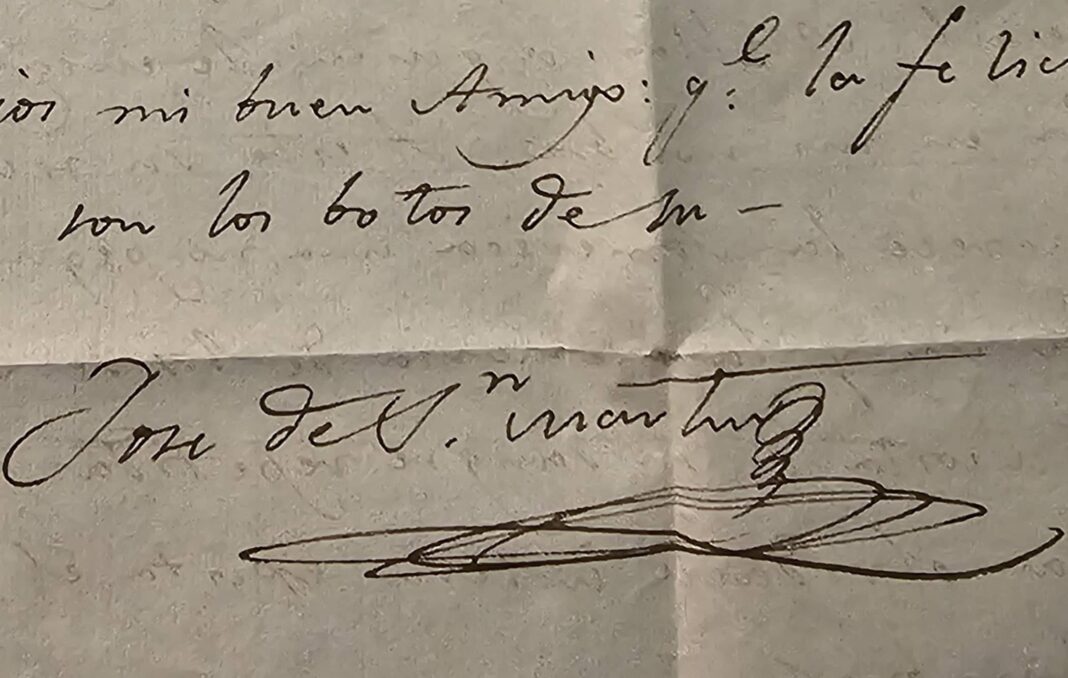 ios mi buen Amigo: q.^e la felici
son los botos de su —
Jose de S.^n Martin